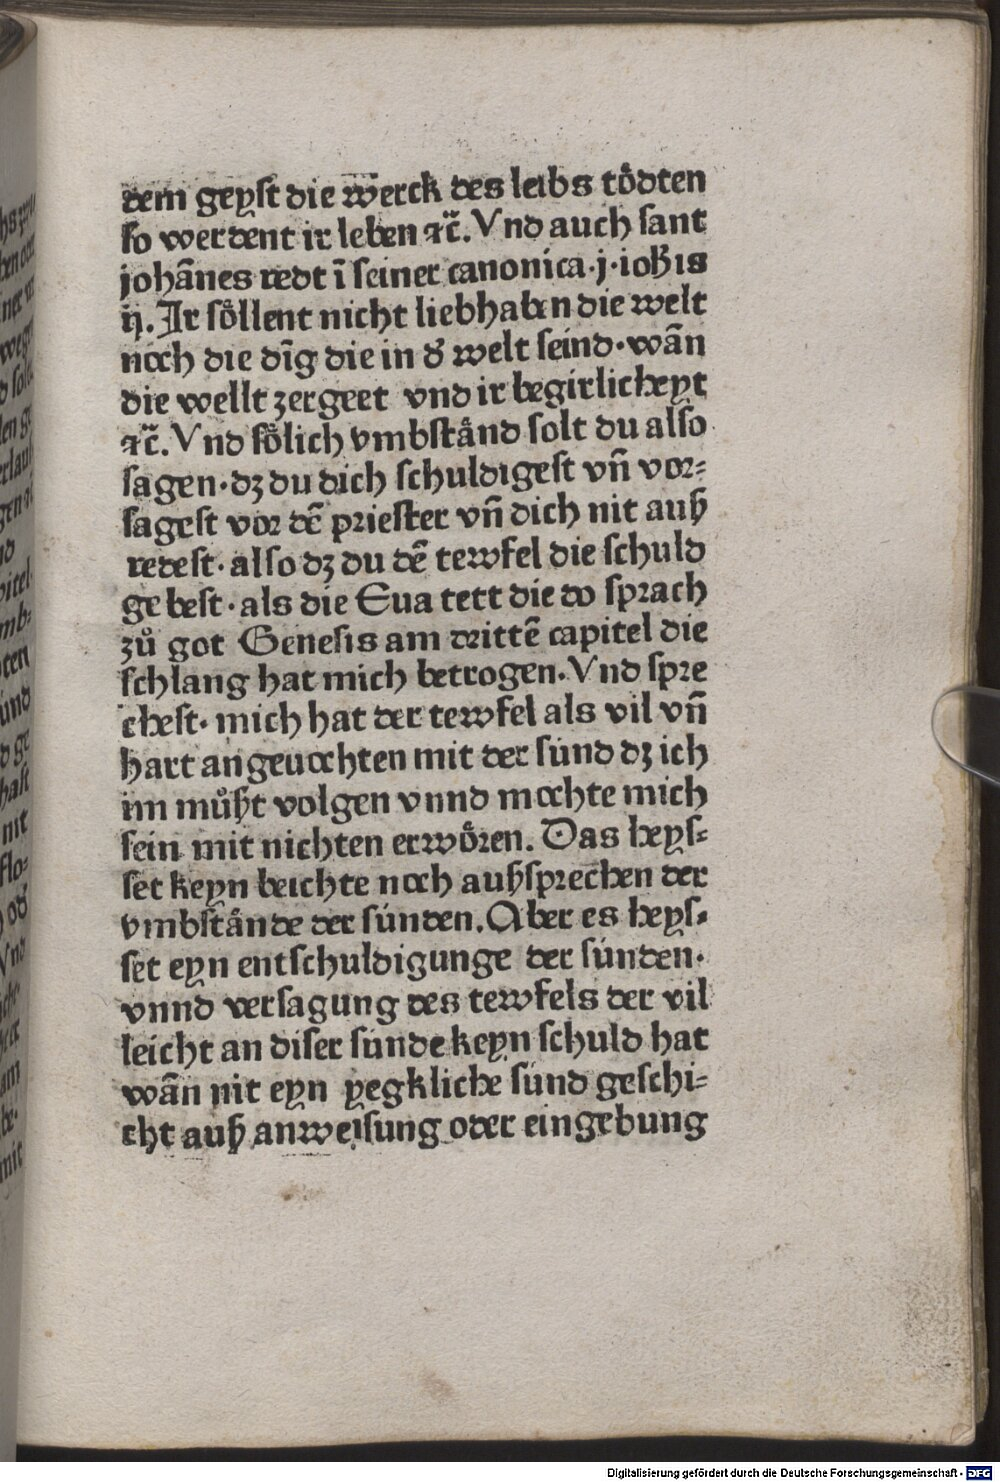 dem geyst die werck des leibs tödten
so werdent ir leben ⁊c̈. Vnd auch sant
johānes redt ī seiner canonica·j·ioh̄is
ij. Ir söllent nicht liebhaben die welt
noch die dīg die in d̉ welt seind·wān
die wellt zergeet vnd ir begirlicheyt
⁊c̈. Vnd sölich vmbständ solt du also
sagen·dz du dich schuldigest vn̄ vor⸗
sagest vor dē priester vn̄ dich nit auß
redest·also dz du dē tewfel die schuld
gebest·als die Eua tett die do sprach
zů got Genesis am drittē capitel die
schlang hat mich betrogen. Vnd spre
chest·mich hat der tewfel als vil vn̄
hart angeuochten mit der sünd dz ich
im můßt volgen vnnd mochte mich
sein mit nichten erwören. Das heys⸗
set keyn beichte noch außsprechen der
vmbstände der sünden. Aber es heys⸗
set eyn entschuldigunge der sünden·
vnnd versagung des tewfels der vil
leicht an diser sünde keyn schuld hat
wān nit eyn yegkliche sünd geschi⸗
cht auß anweisung oder eingebung
Digitalisierung gefördert durch die Deutsche Forschungsgemeinschaft - DFG